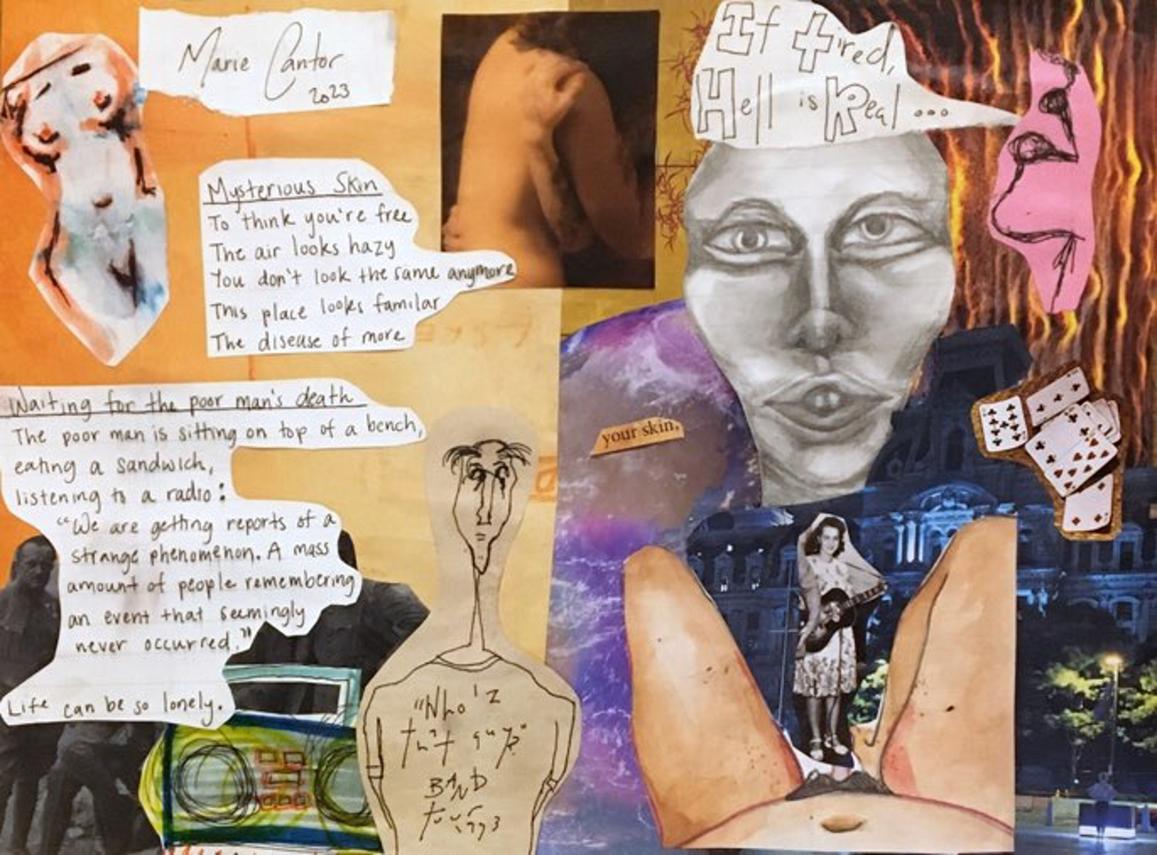 Marie Cantor
2023
If tired,
Hell is Real...
Mysterious Skin
To think you're free
The air looks hazy
You don't look the same anymore
This place looks familar
The disease of more
Waiting for the poor man's death
The poor man is sitting on top of a bench,
eating a sandwich,
listening to a radio:
"We are getting reports of a
strange phenomenon. A mass
amount of people remembering
an event that seemingly
never occurred."
Life can be so lonely.
your skin,
"Who'z
that guy?"
BAND